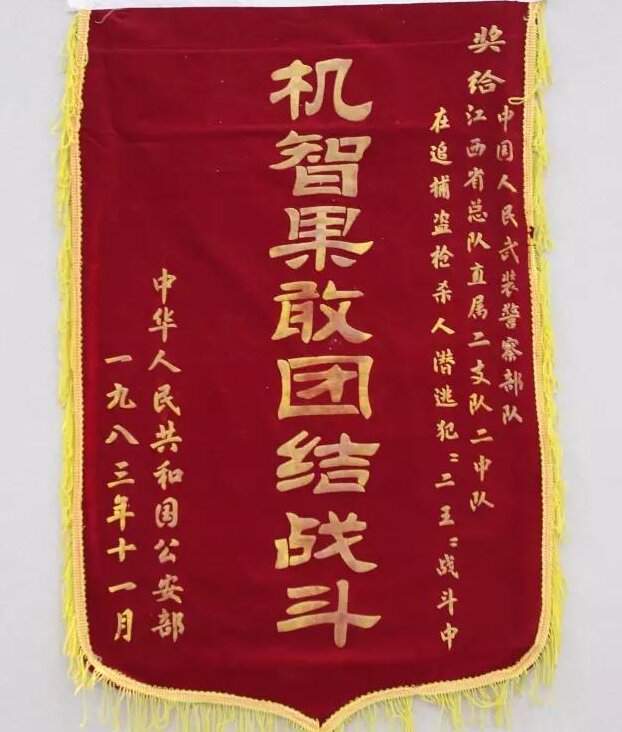 奖给
中国人民武装警察部队
江西省总队直属二支队二中队
在追捕盗枪杀人潜逃犯"二王"战斗中
机智果敢团结战斗
中华人民共和国公安部
一九八三年十一月